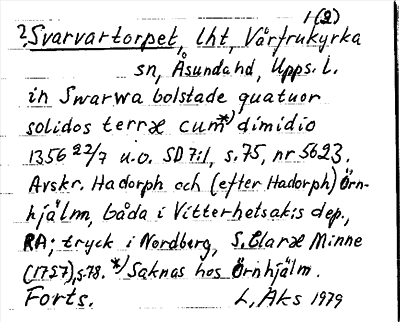 1(2)
?, Svarvartorpet, lht, Vårfrukyrka
sn, Åsundahd, Upps. l.
in Swarwa bolstade quatuor
solidos terræ cum*) dimidio
1356 22/7 u.o. SD 7:1, s. 75, nr 5623.
Avskr. Hadorph och (efter Hadorph) Örn-
hjälm, båda i Vitterhetsak:s dep.,
RA; tryck i Nordberg, S. Claræ Minne
(1727), s. 78. *) Saknas hos Örnhjälm.
Forts. L. Aks 1979